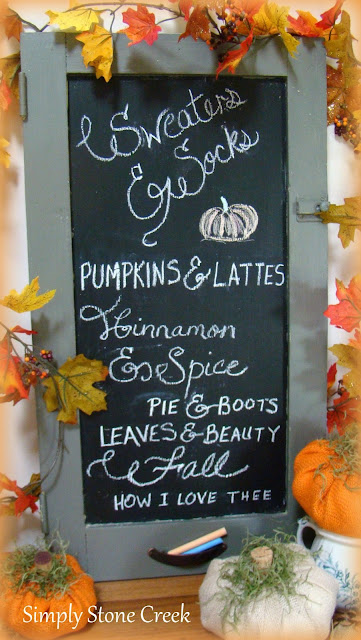 Sweaters
& Socks
PUMPKINS & LATTES
Cinnamon
& Spice
PIE & BOOTS
LEAVES & BEAUTY
Fall
HOW I LOVE THEE
Simply Stone Creek